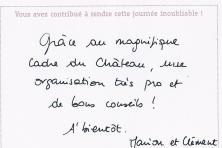 Vous avez contribué à rendre cette journée inoubliable !
Grâce au magnifique
cadre du Château, une
organisation très pro et
de bons conseils !
A bientôt.
Marion et Clément